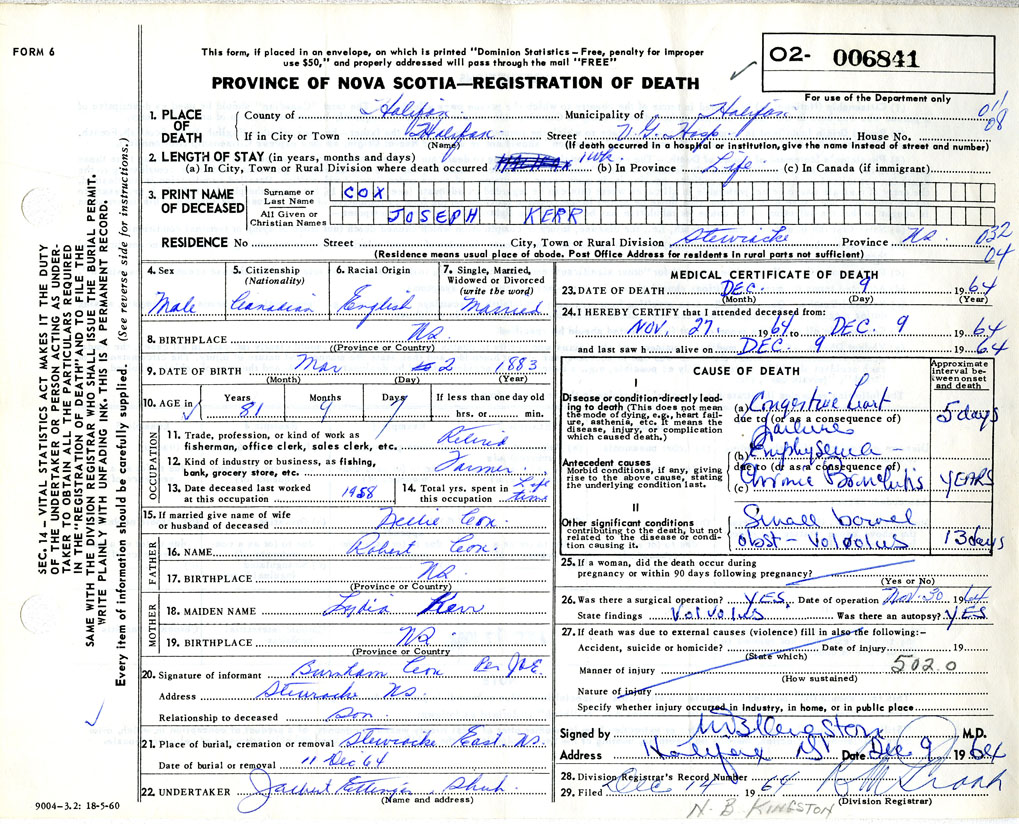 FORM 6
This form, if placed in an envelope, on which is printed "Dominion Statistics – Free, penalty for improper
use $50," and properly addressed will pass through the mail "FREE"
PROVINCE OF NOVA SCOTIA—REGISTRATION OF DEATH
O2- 006841
For use of the Department only
SEC. 14 – VITAL STATISTICS ACT MAKES IT THE DUTY
OF THE UNDERTAKER OR PERSON ACTING AS UNDER-
TAKER TO OBTAIN ALL THE PARTICULARS REQUIRED
IN THE "REGISTRATION OF DEATH" AND TO FILE THE
SAME WITH THE DIVISION REGISTRAR WHO SHALL ISSUE THE BURIAL PERMIT.
WRITE PLAINLY WITH UNFADING INK. THIS IS A PERMANENT RECORD.
Every item of information should be carefully supplied. (See reverse side for instructions.)
1. PLACE OF DEATH
County of Halifax Municipality of Halifax 01/08
If in City or Town Halifax Street V.G. Hosp. House No.
(Name) (If death occurred in a hospital or institution, give the name instead of street and number)
2. LENGTH OF STAY (in years, months and days)
(a) In City, Town or Rural Division where death occurred 1 wk. (b) In Province Life (c) In Canada (if immigrant)
3. PRINT NAME OF DECEASED
Surname or Last Name COX
All Given or Christian Names JOSEPH KERR
RESIDENCE No Street City, Town or Rural Division Stewiacke Province NS. 032
(Residence means usual place of abode. Post Office Address for residents in rural parts not sufficient) 04
4. Sex Male
5. Citizenship (Nationality) Canadian
6. Racial Origin English
7. Single, Married, Widowed or Divorced (write the word) Married
8. BIRTHPLACE NS.
(Province or Country)
9. DATE OF BIRTH Mar 2 1883
(Month) (Day) (Year)
10. AGE in Years 81 Months 9 Days 7 If less than one day old hrs. or min.
OCCUPATION
11. Trade, profession, or kind of work as fisherman, office clerk, sales clerk, etc. Retired
12. Kind of industry or business, as fishing, bank, grocery store, etc. Farmer
13. Date deceased last worked at this occupation 1958
14. Total yrs. spent in this occupation Life time
15. If married give name of wife or husband of deceased Nellie Cox
FATHER
16. NAME Robert Cox.
17. BIRTHPLACE NS.
(Province or Country)
MOTHER
18. MAIDEN NAME Lydia Kerr
19. BIRTHPLACE NS.
(Province or Country
20. Signature of informant Burnham Cox Per JAE.
Address Stewiacke NS.
Relationship to deceased Son
21. Place of burial, cremation or removal Stewiacke East NS.
Date of burial or removal 11 Dec 64
22. UNDERTAKER Ettinger Shub.
(Name and address)
9004-3.2: 18-5-60
MEDICAL CERTIFICATE OF DEATH
23. DATE OF DEATH DEC. 9 1964
(Month) (Day) (Year)
24. I HEREBY CERTIFY that I attended deceased from:
NOV. 27. 1964 to DEC. 9 1964
and last saw h alive on DEC. 9 1964
CAUSE OF DEATH
Approximate interval between onset and death
I
Disease or condition directly leading to death (This does not mean the mode of dying, e.g., heart failure, asthenia, etc. It means the disease, injury, or complication which caused death.)
(a) Congestive heart failure 5 days
due to (or as a consequence of)
Antecedent causes
Morbid conditions, if any, giving rise to the above cause, stating the underlying condition last.
(b) Emphysema –
due to (or as a consequence of)
(c) Chronic Bronchitis YEARS
II
Other significant conditions
contributing to the death, but not related to the disease or condition causing it.
Small bowel
obst – Volvulus 13 days
25. If a woman, did the death occur during pregnancy or within 90 days following pregnancy?
(Yes or No)
26. Was there a surgical operation? YES. Date of operation Nov. 30 1964
State findings Volvulus Was there an autopsy? YES
27. If death was due to external causes (violence) fill in also the following:–
Accident, suicide or homicide? Date of injury 19
(State which)
Manner of injury 502.0
(How sustained)
Nature of injury
Specify whether injury occurred in industry, in home, or in public place
Signed by NB Kingston M.D.
Address Halifax NS Date Dec 9 1964
28. Division Registrar's Record Number
29. Filed Dec 14 1964
(Division Registrar)
N. B. KINGSTON